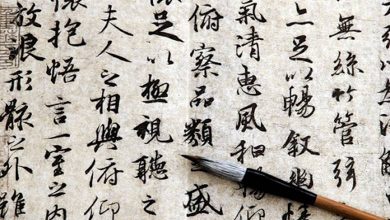 無絲竹管弦
足以暢敘幽
氣清惠風和
俯察品類盛
足以極視聽之
夫人之相與俯仰
懷抱悟言一室之內
放浪形骸之外雖